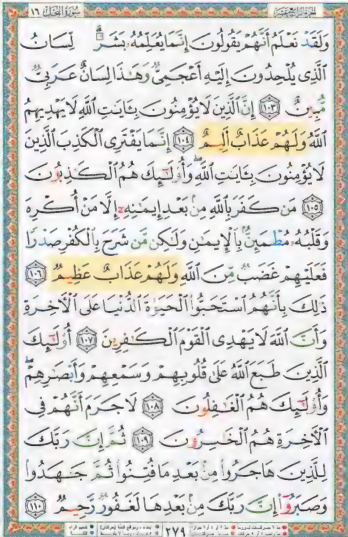 سورة النحل ١٦
وَلَقَدْ نَعْلَمُ أَنَّهُمْ يَقُولُونَ إِنَّمَا يُعَلِّمُهُۥ بَشَرٌ ۗ لِّسَانُ
ٱلَّذِى يُلْحِدُونَ إِلَيْهِ أَعْجَمِىٌّ وَهَٰذَا لِسَانٌ عَرَبِىٌّ
مُّبِينٌ ١٠٣ إِنَّ ٱلَّذِينَ لَا يُؤْمِنُونَ بِـَٔايَٰتِ ٱللَّهِ لَا يَهْدِيهِمُ
ٱللَّهُ وَلَهُمْ عَذَابٌ أَلِيمٌ ١٠٤ إِنَّمَا يَفْتَرِى ٱلْكَذِبَ ٱلَّذِينَ
لَا يُؤْمِنُونَ بِـَٔايَٰتِ ٱللَّهِ ۖ وَأُو۟لَٰٓئِكَ هُمُ ٱلْكَٰذِبُونَ
١٠٥ مَن كَفَرَ بِٱللَّهِ مِنۢ بَعْدِ إِيمَٰنِهِۦٓ إِلَّا مَنْ أُكْرِهَ
وَقَلْبُهُۥ مُطْمَئِنٌّۢ بِٱلْإِيمَٰنِ وَلَٰكِن مَّن شَرَحَ بِٱلْكُفْرِ صَدْرًا
فَعَلَيْهِمْ غَضَبٌ مِّنَ ٱللَّهِ وَلَهُمْ عَذَابٌ عَظِيمٌ ١٠٦
ذَٰلِكَ بِأَنَّهُمُ ٱسْتَحَبُّوا۟ ٱلْحَيَوٰةَ ٱلدُّنْيَا عَلَى ٱلْـَٔاخِرَةِ
وَأَنَّ ٱللَّهَ لَا يَهْدِى ٱلْقَوْمَ ٱلْكَٰفِرِينَ ١٠٧ أُو۟لَٰٓئِكَ
ٱلَّذِينَ طَبَعَ ٱللَّهُ عَلَىٰ قُلُوبِهِمْ وَسَمْعِهِمْ وَأَبْصَٰرِهِمْ ۖ
وَأُو۟لَٰٓئِكَ هُمُ ٱلْغَٰفِلُونَ ١٠٨ لَا جَرَمَ أَنَّهُمْ فِى
ٱلْـَٔاخِرَةِ هُمُ ٱلْخَٰسِرُونَ ١٠٩ ثُمَّ إِنَّ رَبَّكَ
لِلَّذِينَ هَاجَرُوا۟ مِنۢ بَعْدِ مَا فُتِنُوا۟ ثُمَّ جَٰهَدُوا۟
وَصَبَرُوٓا۟ إِنَّ رَبَّكَ مِنۢ بَعْدِهَا لَغَفُورٌ رَّحِيمٌ ١١٠
٢٧٩